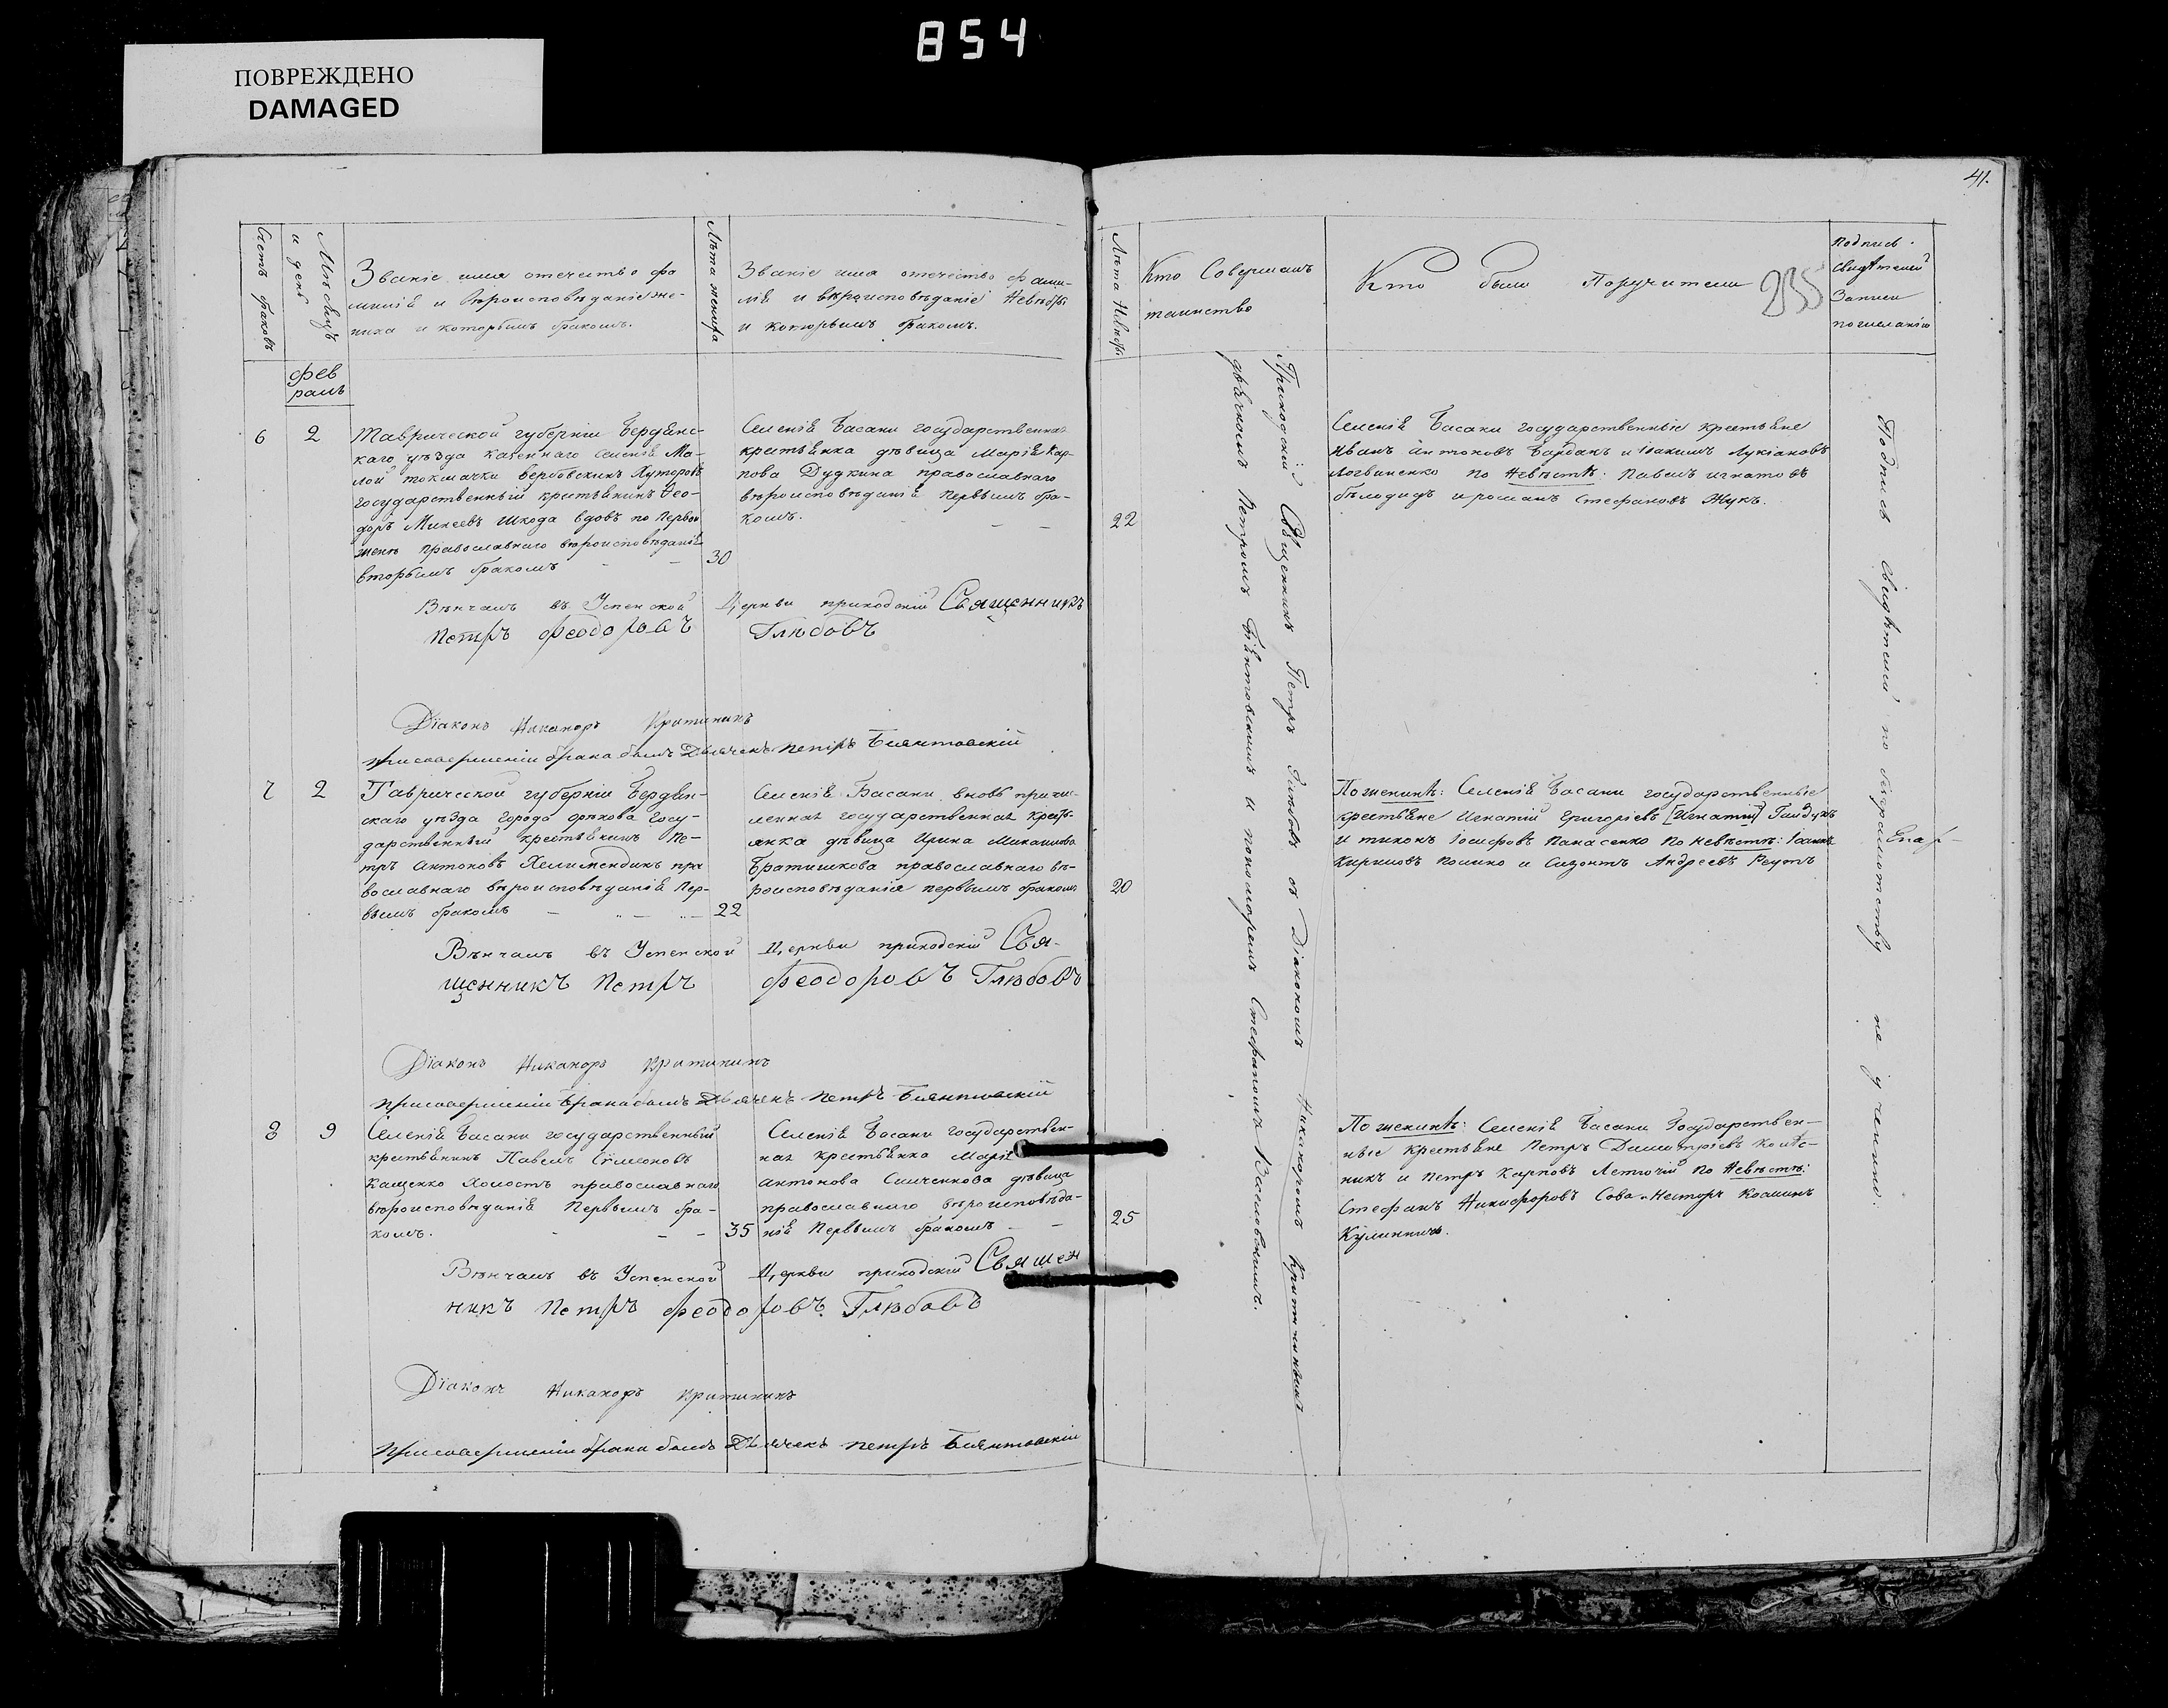 854
ПОВРЕЖДЕНО
DAMAGED
41.
Счетъ браковъ
Мѣсяцъ
и день
Званіе имя отечество фа
милія и вѣроисповѣданіе же-
ниха и которымъ бракомъ.
Лѣта жениха
Званіе имя отечество фами-
лія и вѣроисповѣданіе Невѣсты
и которымъ бракомъ.
Лѣта Невѣсты
Кто Совершалъ
таинство
Кто были Поручители
235
Подпись
свидѣтелей
Записи
по желанію
фев
раль
6 2
Таврической губерніи Бердянс-
каго уѣзда казеннаго селенія Ма-
лой токмачки вербовскихъ Хуторовъ
государственный крестьянинъ Ѳео-
доръ Микеевъ Шкода вдовъ по первой
женѣ православнаго вѣроисповѣданія
вторымъ бракомъ
30
Селенія Басани государственная
крестьянка дѣвица Марія Кар-
пова Дудкина православнаго
вѣроисповѣданія первымъ бра-
комъ.
22
Селенія Басани государственные крестьяне
Иванъ Антоновъ Барданъ и Іоакимъ Лукіановъ
Логвиненко по невѣстѣ: Павелъ игнатовъ
бѣлодидъ и романъ Стефановъ Жукъ.
Вѣнчалъ въ Успенской Церкви приходскій Священникъ
Петръ Феодоровъ Глѣбовъ
Діаконъ Никаноръ
при совершеніи брака былъ Дьячекъ Петръ Біянтовскій
7 2
Таврической губерніи Бердян-
скаго уѣзда города орѣхова госу-
дарственный крестьянинъ Пе-
тръ Антоновъ Хелимендикъ пра
вославнаго вѣроисповѣданія пер-
вымъ бракомъ
22
Селенія Басани вновь причи-
сленная государственная крест-
янка дѣвица Ирина Михаилова
Братишкова православнаго вѣ-
роисповѣданія первымъ бракомъ
20
По женихѣ: Селенія Басани государственные
крестьяне Игнатій Григоріевъ [Игнатій] Гайдукъ
и тихонъ Іосифовъ Панасенко по невѣстѣ: Іоаннъ
Кириловъ Полино и Сизонтъ Андреевъ Реутъ
Вѣнчалъ въ Успенской Церкви приходскій Свя-
щенникъ Петръ Феодоровъ Глѣбовъ
Діаконъ Никаноръ
при совершеніи брака былъ Дьячекъ Петръ Біянтовскій
8 9
Селенія Басани государственный
крестьянинъ Павелъ Сѵмеоновъ
Кащенко холостъ православнаго
вѣроисповѣданія Первымъ бра-
комъ.
35
Селенія Басани государствен-
ная крестьянка Марія
антонова Симченкова дѣвица
православнаго вѣроисповѣда-
нія Первымъ бракомъ
25
По женихѣ: Селенія Басани Государствен-
ные крестьяне Петръ Димитріевъ Колѣс-
никъ и Петръ Карповъ Летючій по Невѣстѣ:
Стефанъ Никифоровъ Сова и Несторъ Козминъ
Кулиничъ.
Вѣнчалъ въ Успенской Церкви приходскій Священ
никъ Петръ Феодоровъ Глѣбовъ
Діаконъ Никаноръ
При совершеніи брака былъ Дьячекъ Петръ Біянтовскій
Приходскій Священникъ Петръ Глѣбовъ съ Діакономъ Никаноромъ
дьячкомъ Петромъ Біянтовскимъ и пономаремъ Стефаномъ
Подписи свидѣтелей по безграмотству не учинено.